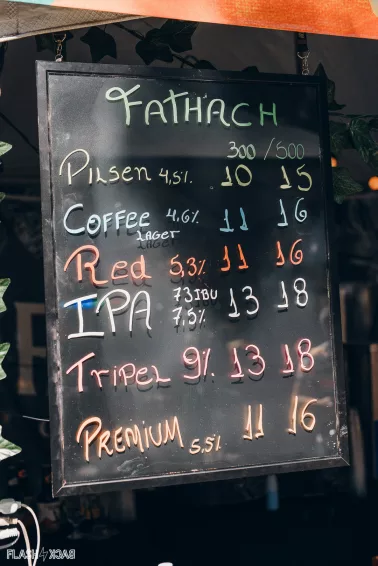 FATHACH
300 / 500
PILSEN 4,5%. 10 15
COFFEE 4,6% 11 16
LAGER
Red 5,3% 11 16
IPA 73 IBU 13 18
7,5%
TRIPEL 9%. 13 18
PREMIUM 5,5% 11 16
FLASH BACK